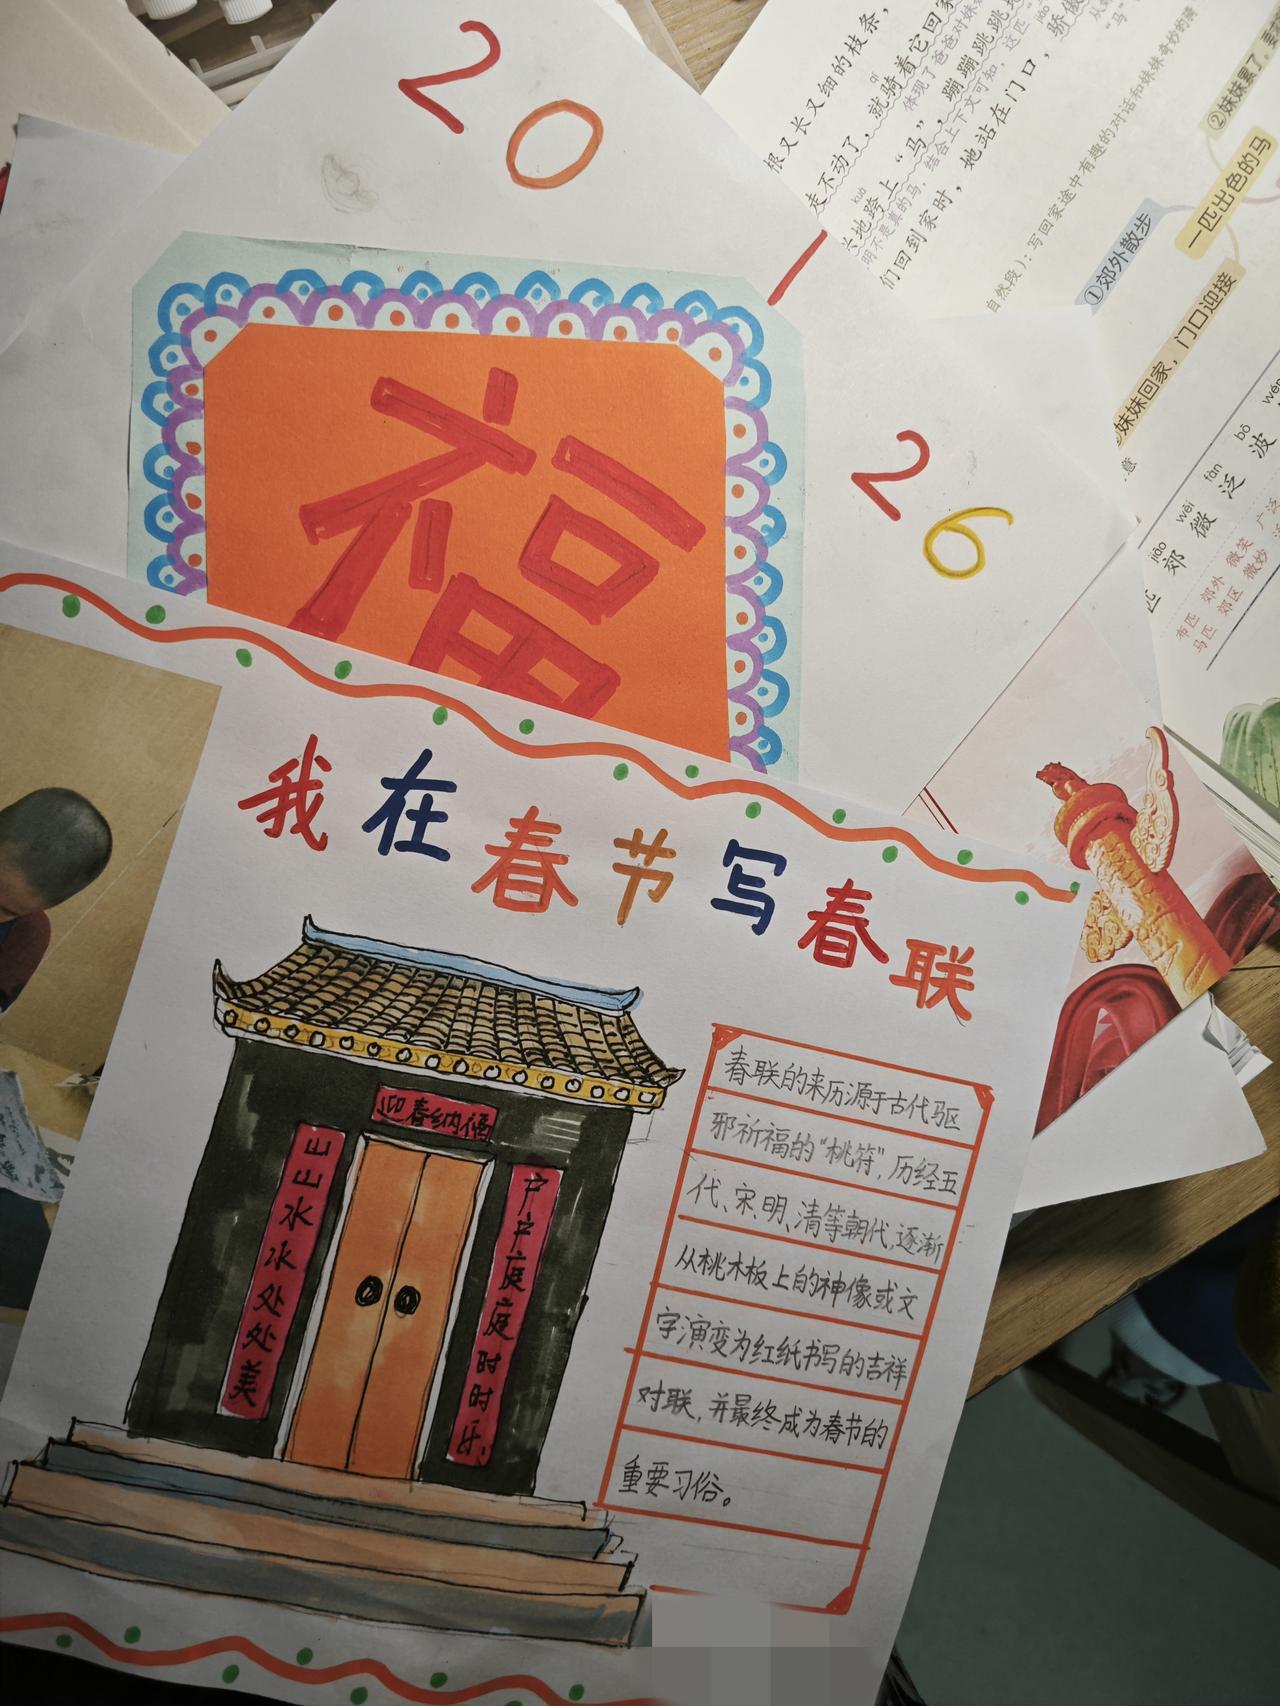 2026
福
我在春节写春联
迎春纳福
山山水水处处美
户户庭庭时时乐
春联的来历源于古代驱
邪祈福的“桃符”,历经五
代、宋、明、清等朝代,逐渐
从桃木板上的神像或文
字演变为红纸书写的吉祥
对联,并最终成为春节的
重要习俗。
根又长又细的枝条,
走不动了,就骑着它回家
体现了爸爸对妹
兴地跨上“马”,蹦蹦跳跳地
明不是真的马,结合上下文可知,这匹“
们回到家时,她站在门口,骄傲
自然段):写回家途中有趣的对话和妹妹奇妙的骑
①郊外散步
②妹妹累了,
一匹出色的马
妹妹回家,门口迎接
jiāo wēi fàn bō wén
郊 微 泛 波
布匹 郊外 微笑 广泛
马匹 郊区 微妙